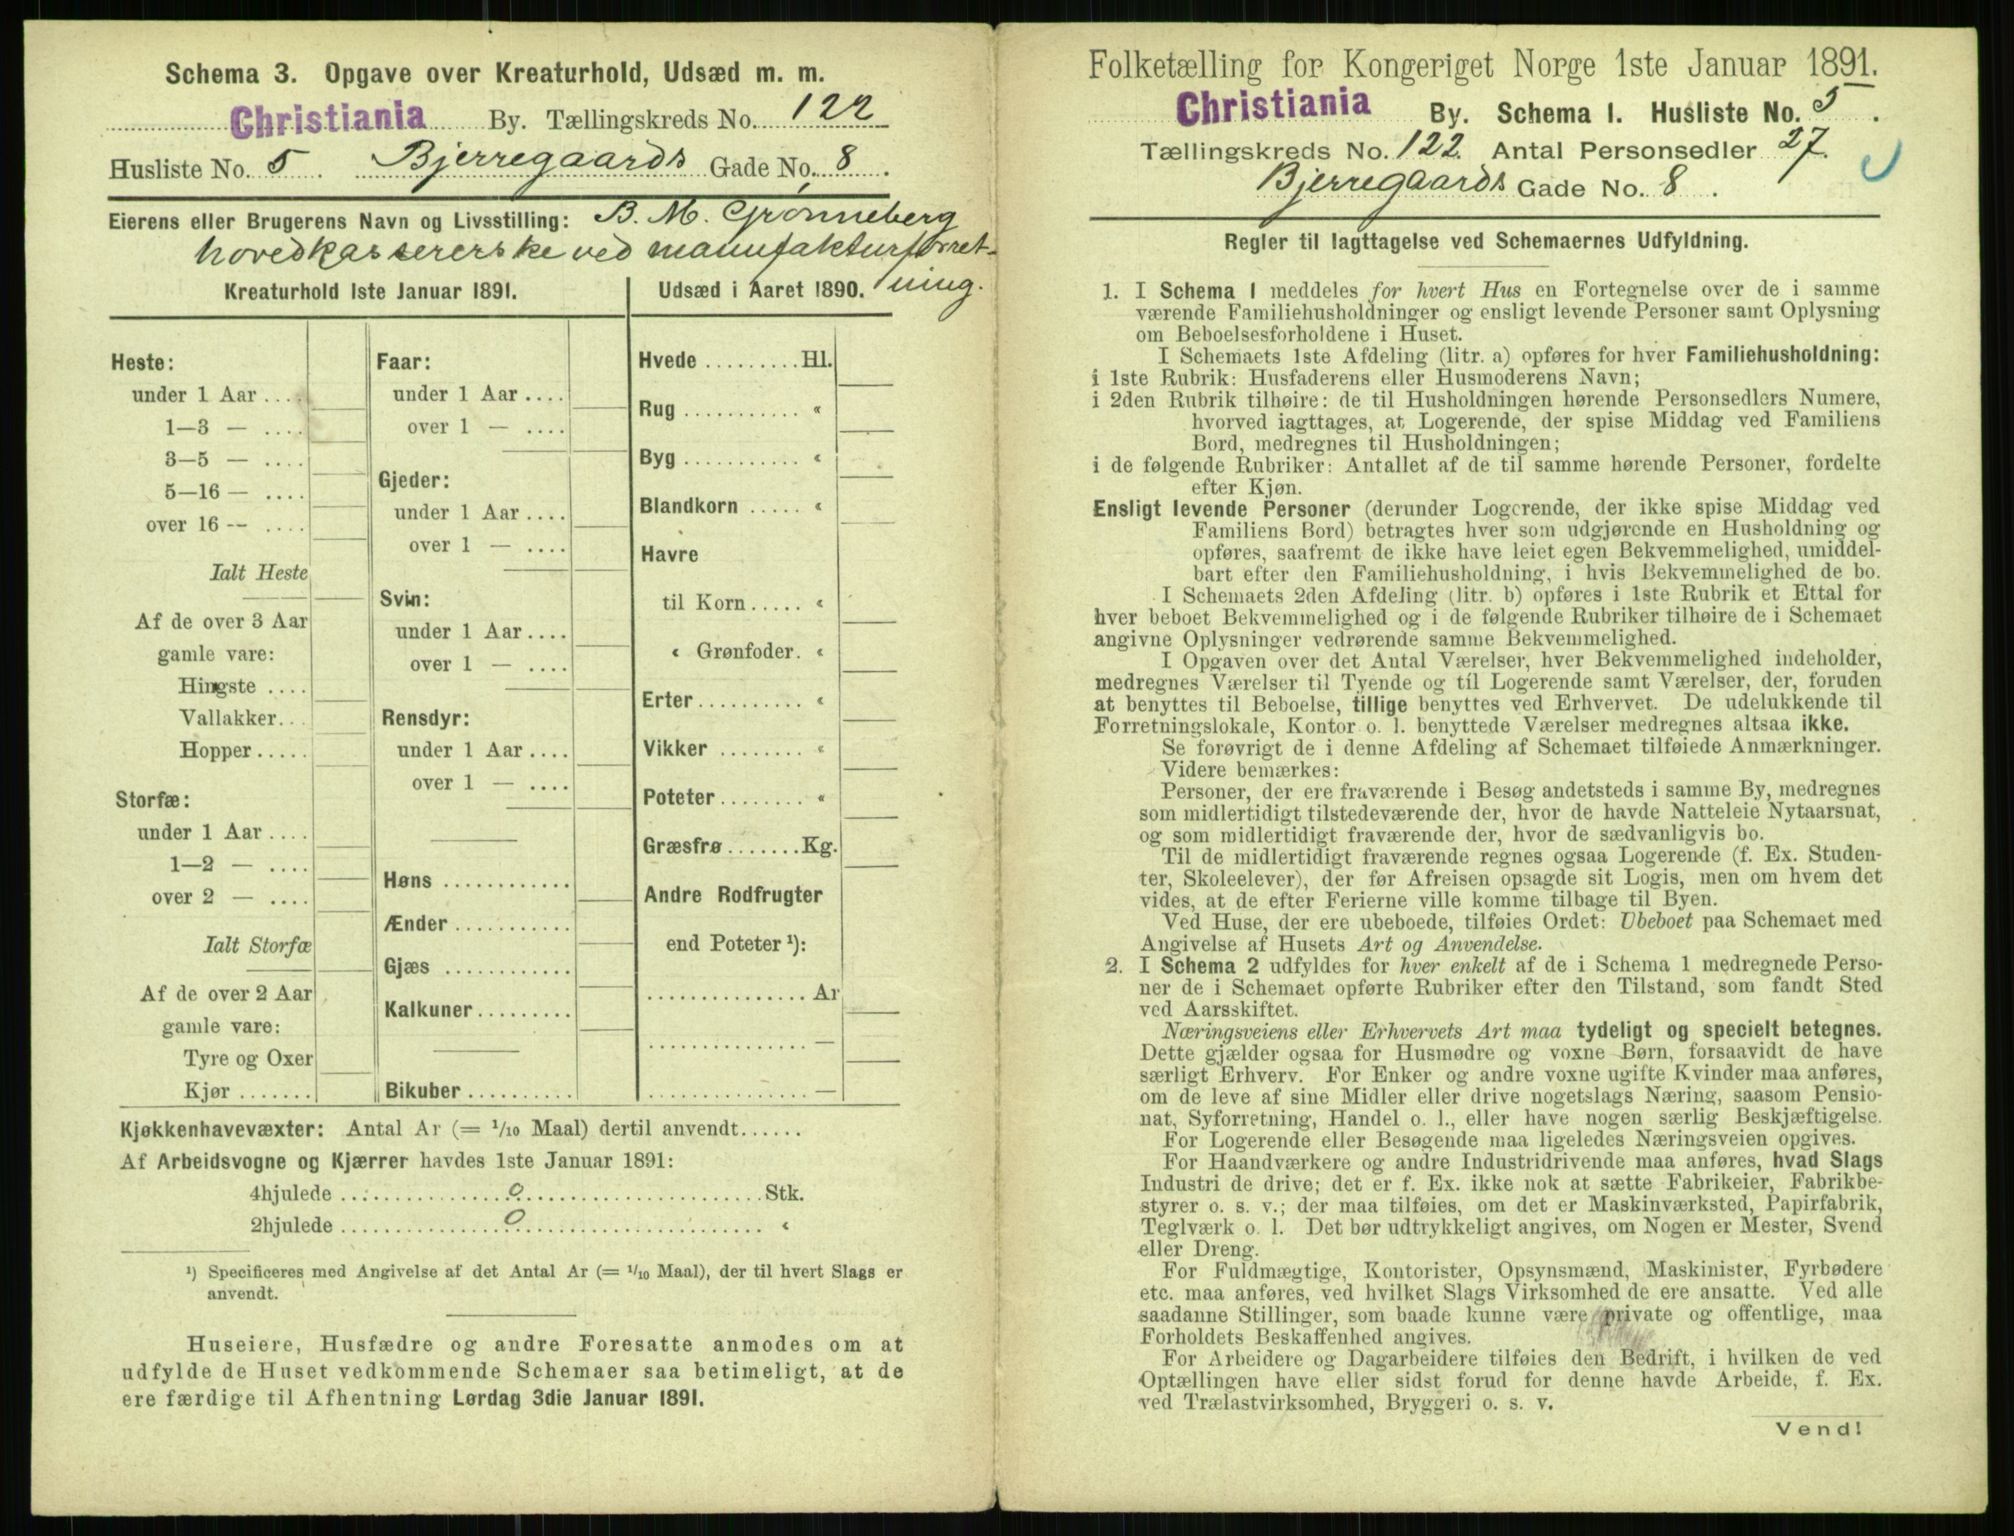 Schema 3. Opgave over Kreaturhold, Udsæd m. m.
Christiania By. Tællingskreds No. 122
Husliste No. 5 . Bjerregaards Gade No. 8 .
Eierens eller Brugerens Navn og Livsstilling: B. M. Grønneberg
hovedkassererske ved manufakturforret-
ning.
Kreaturhold 1ste Januar 1891.
Heste:
under 1 Aar ....
1—3 — ....
3—5 — ....
5—16 — ....
over 16 -- ....
Ialt Heste
Af de over 3 Aar
gamle vare:
Hingste ....
Vallakker...
Hopper .....
Storfæ:
under 1 Aar ....
1—2 — ....
over 2 — ....
Ialt Storfæ
Af de over 2 Aar
gamle vare:
Tyre og Oxer
Kjør .......
Faar:
under 1 Aar ....
over 1 — ....
Gjeder:
under 1 Aar ....
over 1 — ....
Svin:
under 1 Aar ....
over 1 — ....
Rensdyr:
under 1 Aar ....
over 1 — ....
Høns ............
Ænder ...........
Gjæs ............
Kalkuner.........
Bikuber ..........
Udsæd i Aaret 1890.
Hvede .........Hl.
Rug ........... «
Byg ........... «
Blandkorn ..... «
Havre
til Korn ..... «
« Grønfoder. «
Erter.......... «
Vikker ........ «
Poteter........ «
Græsfrø .......Kg.
Andre Rodfrugter
end Poteter ¹):
............... Ar
............... —
............... —
Kjøkkenhavevæxter: Antal Ar (= 1/10 Maal) dertil anvendt......
Af Arbeidsvogne og Kjærrer havdes 1ste Januar 1891:
4hjulede ................0........................Stk.
2hjulede ................0........................ «
¹) Specificeres med Angivelse af det Antal Ar (= 1/10 Maal), der til hvert Slags er
anvendt.
Huseiere, Husfædre og andre Foresatte anmodes om at
udfylde de Huset vedkommende Schemaer saa betimeligt, at de
ere færdige til Afhentning Lørdag 3die Januar 1891.
Folketælling for Kongeriget Norge 1ste Januar 1891.
Christiania By. Schema I. Husliste No. 5 .
Tællingskreds No. 122. Antal Personsedler 27.
Bjerregaards Gade No. 8 .
Regler til Iagttagelse ved Schemaernes Udfyldning.
1. I Schema I meddeles for hvert Hus en Fortegnelse over de i samme
værende Familiehusholdninger og ensligt levende Personer samt Oplysning
om Beboelsesforholdene i Huset.
I Schemaets 1ste Afdeling (litr. a) opføres for hver Familiehusholdning:
i 1ste Rubrik: Husfaderens eller Husmoderens Navn;
i 2den Rubrik tilhøire: de til Husholdningen hørende Personsedlers Numere,
hvorved iagttages, at Logerende, der spise Middag ved Familiens
Bord, medregnes til Husholdningen;
i de følgende Rubriker: Antallet af de til samme hørende Personer, fordelte
efter Kjøn.
Ensligt levende Personer (derunder Logerende, der ikke spise Middag ved
Familiens Bord) betragtes hver som udgjørende en Husholdning og
opføres, saafremt de ikke have leiet egen Bekvemmelighed, umiddel-
bart efter den Familiehusholdning, i hvis Bekvemmelighed de bo.
I Schemaets 2den Afdeling (litr. b) opføres i 1ste Rubrik et Ettal for
hver beboet Bekvemmelighed og i de følgende Rubriker tilhøire de i Schemaet
angivne Oplysninger vedrørende samme Bekvemmelighed.
I Opgaven over det Antal Værelser, hver Bekvemmelighed indeholder,
medregnes Værelser til Tyende og til Logerende samt Værelser, der, foruden
at benyttes til Beboelse, tillige benyttes ved Erhvervet. De udelukkende til
Forretningslokale, Kontor o. l. benyttede Værelser medregnes altsaa ikke.
Se forøvrigt de i denne Afdeling af Schemaet tilføiede Anmærkninger.
Videre bemærkes:
Personer, der ere fraværende i Besøg andetsteds i samme By, medregnes
som midlertidigt tilstedeværende der, hvor de havde Natteleie Nytaarsnat,
og som midlertidigt fraværende der, hvor de sædvanligvis bo.
Til de midlertidigt fraværende regnes ogsaa Logerende (f. Ex. Studen-
ter, Skoleelever), der før Afreisen opsagde sit Logis, men om hvem det
vides, at de efter Ferierne ville komme tilbage til Byen.
Ved Huse, der ere ubeboede, tilføies Ordet: Ubeboet paa Schemaet med
Angivelse af Husets Art og Anvendelse.
2. I Schema 2 udfyldes for hver enkelt af de i Schema 1 medregnede Perso-
ner de i Schemaet opførte Rubriker efter den Tilstand, som fandt Sted
ved Aarsskiftet.
Næringsveiens eller Erhvervets Art maa tydeligt og specielt betegnes.
Dette gjælder ogsaa for Husmødre og voxne Børn, forsaavidt de have
særligt Erhverv. For Enker og andre voxne ugifte Kvinder maa anføres,
om de leve af sine Midler eller drive nogetslags Næring, saasom Pensio-
nat, Syforretning, Handel o. l., eller have nogen særlig Beskjæftigelse.
For Logerende eller Besøgende maa ligeledes Næringsveien opgives.
For Haandværkere og andre Industridrivende maa anføres, hvad Slags
Industri de drive; det er f. Ex. ikke nok at sætte Fabrikeier, Fabrikbe-
styrer o. s. v.; der maa tilføies, om det er Maskinværksted, Papirfabrik,
Teglværk o. l. Det bør udtrykkeligt angives, om Nogen er Mester, Svend
eller Dreng.
For Fuldmægtige, Kontorister, Opsynsmænd, Maskinister, Fyrbødere
etc. maa anføres, ved hvilket Slags Virksomhed de ere ansatte. Ved alle
saadanne Stillinger, som baade kunne være private og offentlige, maa
Forholdets Beskaffenhed angives.
For Arbeidere og Dagarbeidere tilføies den Bedrift, i hvilken de ved
Optællingen have eller sidst forud for denne havde Arbeide, f. Ex.
ved Trælastvirksomhed, Bryggeri o. s. v.
Vend!